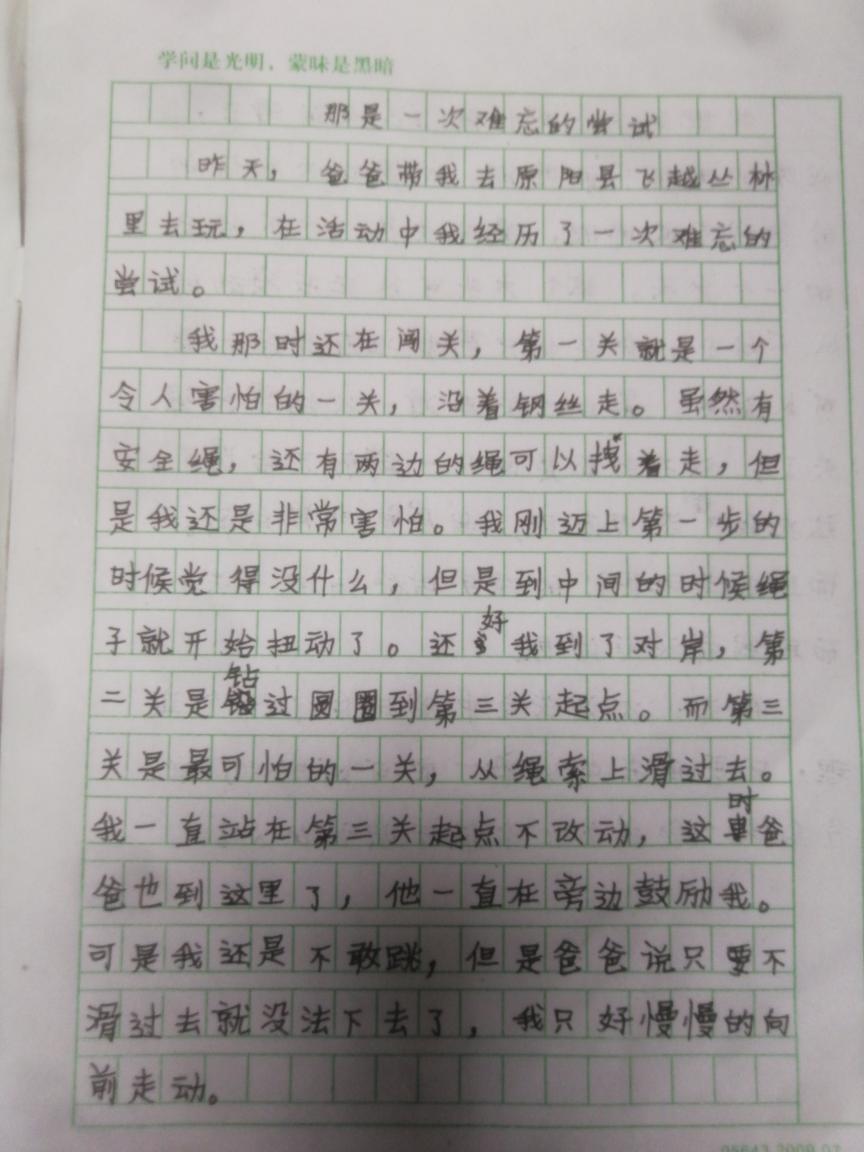 学问是光明，蒙昧是黑暗
那是一次难忘的尝试
昨天，爸爸带我去原阳县飞越丛林
里去玩，在活动中我经历了一次难忘的
尝试。
我那时还在闯关，第一关就是一个
令人害怕的一关，沿着钢丝走。虽然有
安全绳，还有两边的绳可以拽着走，但
是我还是非常害怕。我刚迈上第一步的
时候觉得没什么，但是到中间的时候绳
子就开始扭动了。还好我到了对岸，第
二关是钻过圆圈到第三关起点。而第三
关是最可怕的一关，从绳索上滑过去。
我一直站在第三关起点不改动，这时爸
爸也到这里了，他一直在旁边鼓励我。
可是我还是不敢跳，但是爸爸说只要不
滑过去就没法下去了，我只好慢慢的向
前走动。
05643 2009.07